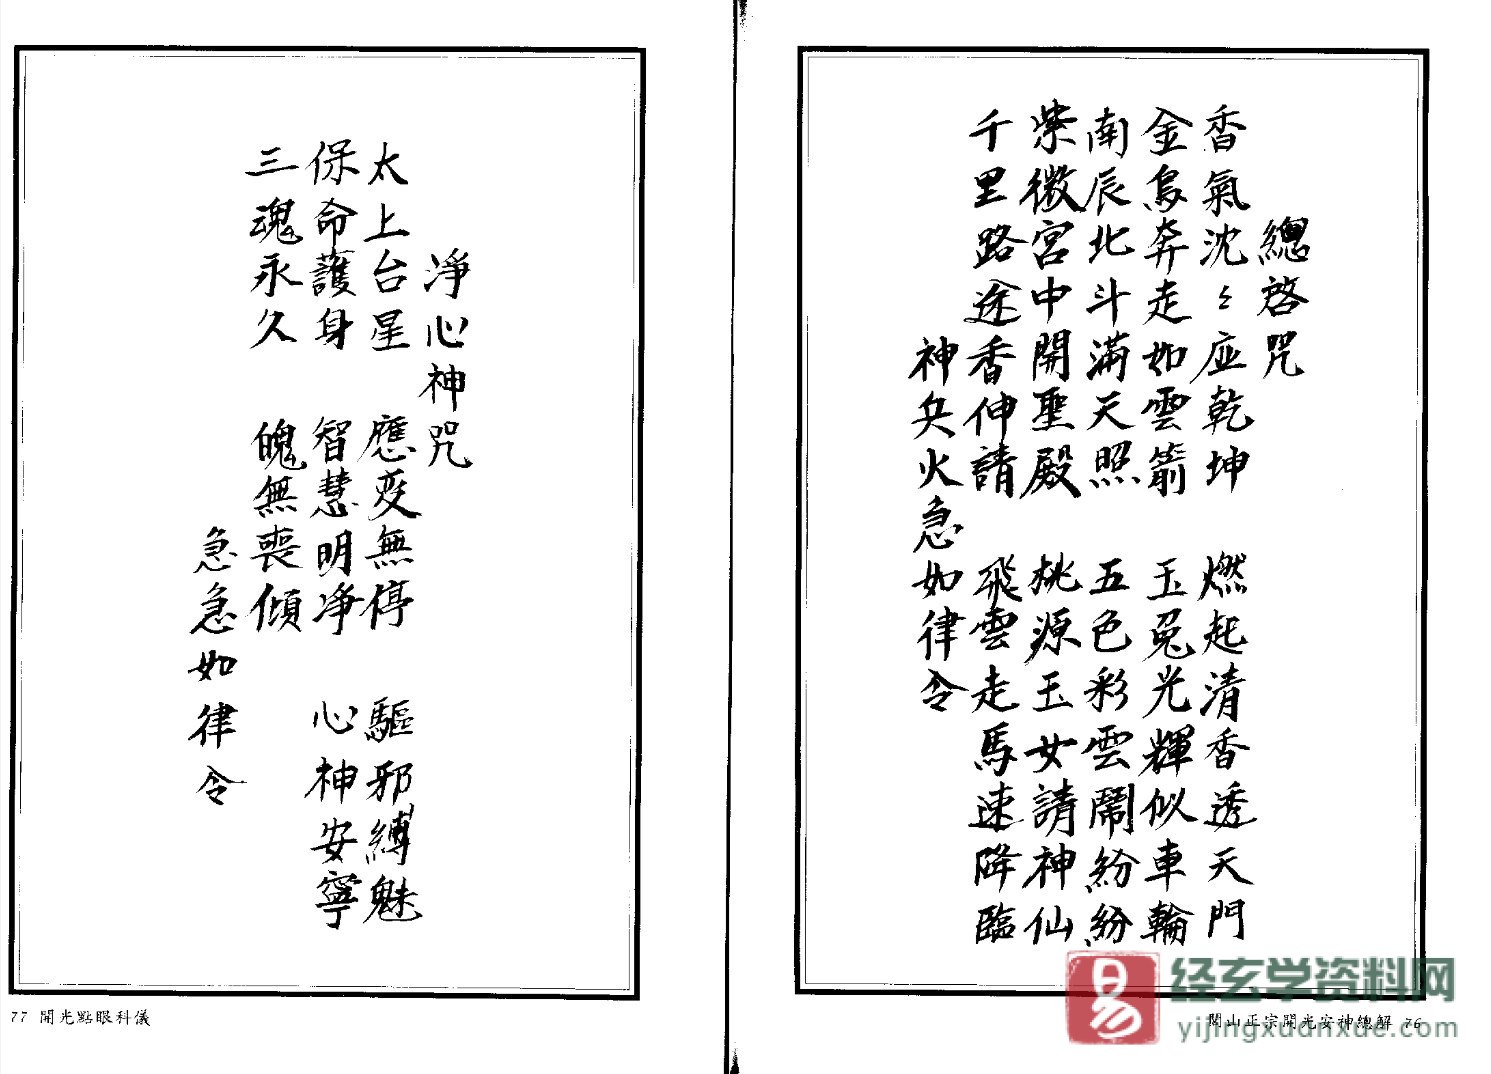 總啓咒
香氣沈〻应乾坤　燃起清香透天門
金烏奔走如雲箭　玉兔光輝似車輪
南辰北斗滿天照　五色彩雲鬧紛紛
紫微宮中開聖殿　桃源玉女請神仙
千里路途香伸請　飛雲走馬速降臨
神兵火急如律令
閭山正宗開光安神總解 76
淨心神咒
太上台星　應变無停　驅邪縛魅
保命護身　智慧明净　心神安寧
三魂永久　魄無喪傾
急急如律令
77 開光點眼科儀
易
经玄学资料网
yijingxuanxue.com